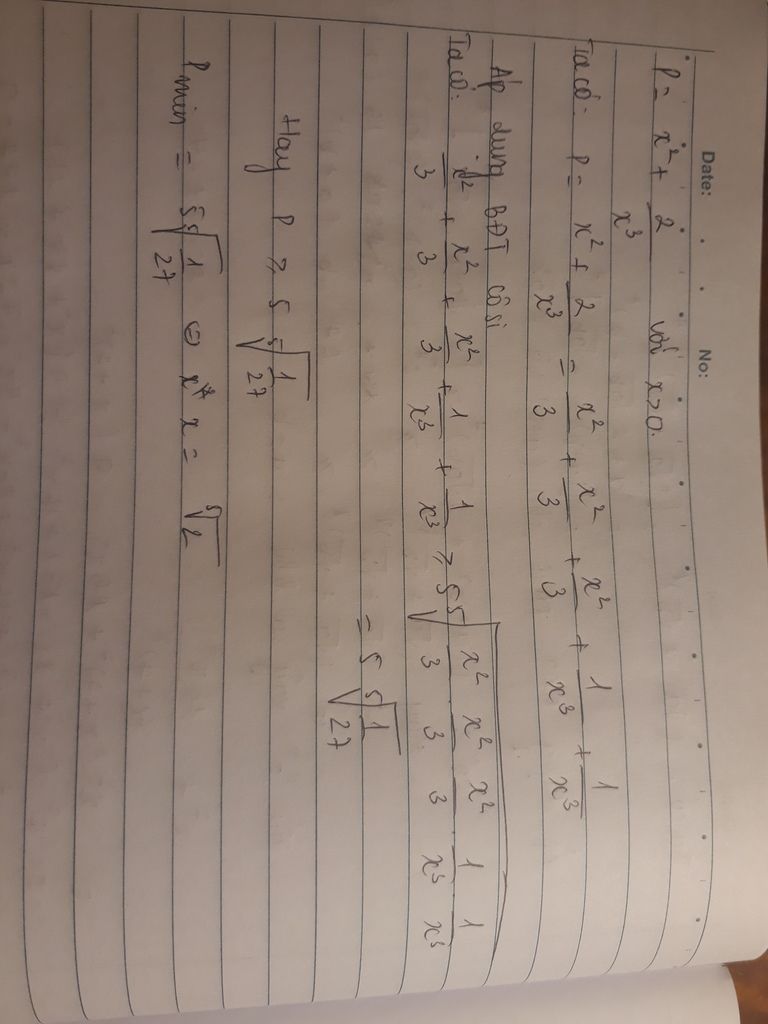 Date: No:
P = x² + 2/x³ với x>0.
Ta có: P = x² + 2/x³ = x²/3 + x²/3 + x²/3 + 1/x³ + 1/x³
Áp dụng BĐT côsi
Ta có: x²/3 + x²/3 + x²/3 + 1/x³ + 1/x³ ≥ 5 ⁵√(x²/3 x²/3 x²/3 1/x³ 1/x³)
= 5 ⁵√(1/27)
Hay P ≥ 5 ⁵√(1/27)
Pmin = 5 ⁵√(1/27) ⇔ x = ⁵√